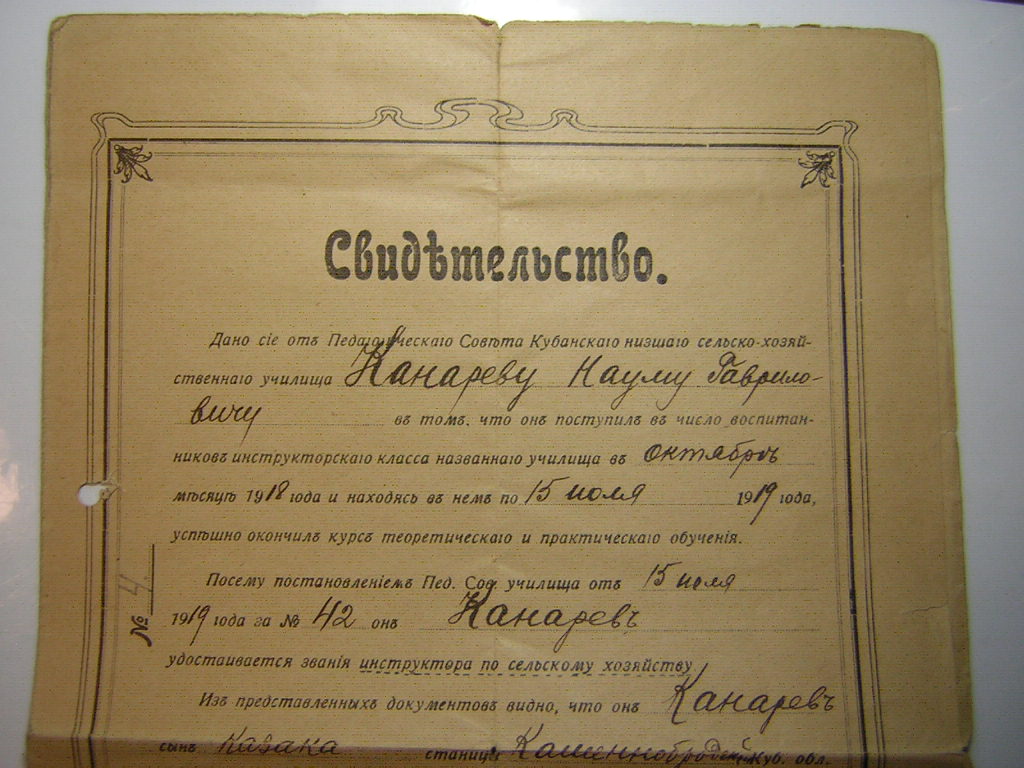 Свидѣтельство.
Дано сіе отъ Педагогическаго Совѣта Кубанскаго низшаго сельско-хозяй-
ственнаго училища Канареву Науму Гаврило-
вичу въ томъ, что онъ поступилъ въ число воспитан-
никовъ инструкторскаго класса названнаго училища въ октябрѣ
мѣсяцѣ 1918 года и находясь въ немъ по 15 июля 1919 года,
успѣшно окончилъ курсъ теоретическаго и практическаго обученія.
Посему постановленіемъ Пед. Сов. училища отъ 15 июля
1919 года за № 42 онъ Канаревъ
удостаивается званія инструктора по сельскому хозяйству
Изъ представленныхъ документовъ видно, что онъ Канаревъ
сынъ казака станицы Каменнобродской, Куб. обл.
№ 4.